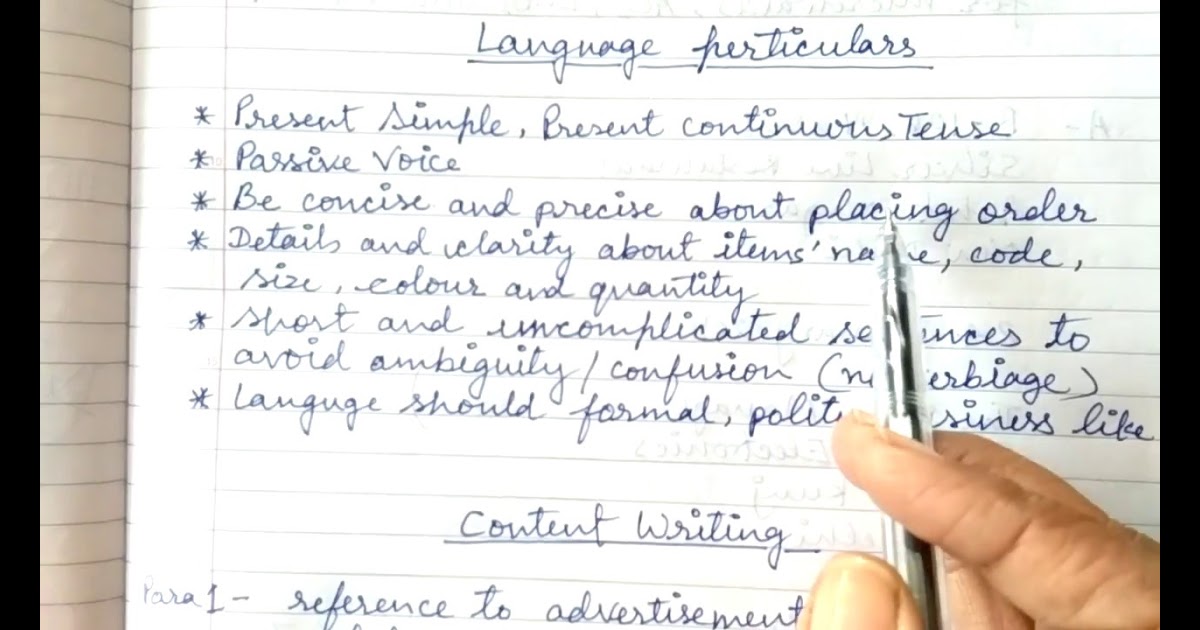 Language perticulars
* Present Simple, Present continuous Tense
* Passive Voice
* Be concise and precise about placing order
* Details and clarity about items' name, code,
size, colour and quantity
* Short and uncomplicated sentences to
avoid ambiguity/confusion (no verbiage)
* Languge should formal, polite, business like
Content Writing
Para 1 - reference to advertisement